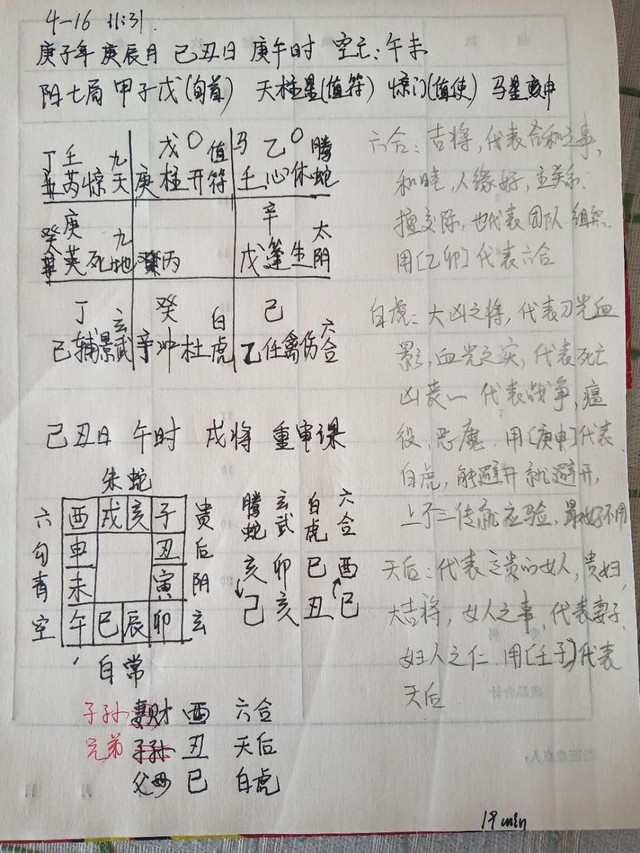 4-16 11:31.
庚子年 庚辰月 己丑日 庚午时 空亡:午未
阳七局 甲子戊(旬首) 天柱星(值符) 惊门(值使) 马星申
丁壬 九 戊〇 值 马 乙〇 腾
芮惊天 庚柱开符 壬心休蛇
庚 九 辛 太
癸英死地 丙 戊蓬生阴
丁 玄 癸 白 己 六
己辅景武 辛冲杜虎 乙任禽伤合
己丑日 午时 戌将 重审课
朱蛇
六 酉戌亥子 贵
勾 申 丑 后
青 未 寅 阴
空 午巳辰卯 玄
白常
腾蛇 玄武 白虎 六合
亥 卯 巳 酉
己 亥 丑 巳
子孙 妻财 酉 六合
兄弟 子孙 丑 天后
父母 巳 白虎
六合:吉将,代表合和之事,
和睦,人缘好,主关系.
擅交际,也代表团队 组织.
用[乙卯]代表六合
白虎:大凶之将,代表刀光血
影,血光之灾,代表死亡
凶丧 代表战争,瘟
疫,恶魔.用[庚申]代表
白虎,能避开就避开,
上了三传就应验,最好不用
天后:代表之贵的女人,贵妇,
大吉将,女人之事,代表妻子,
妇人之仁.用[壬子]代表
天后
19min